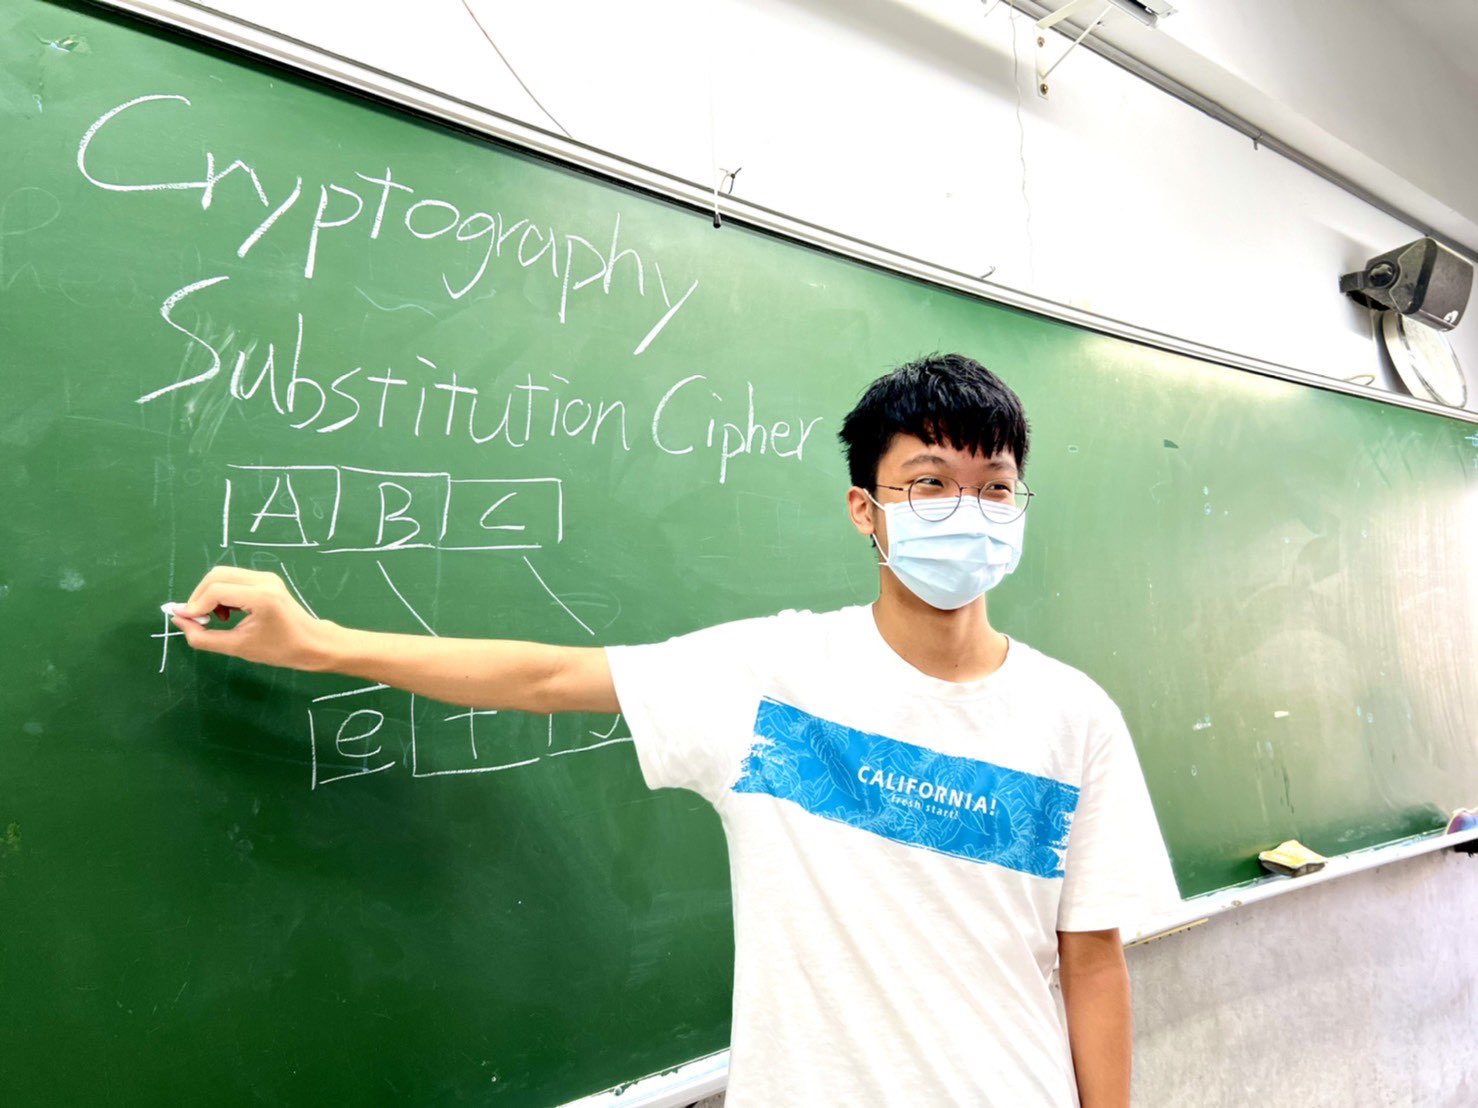 Cryptography
Substitution Cipher
A B C
e t
CALIFORNIA!
fresh start!